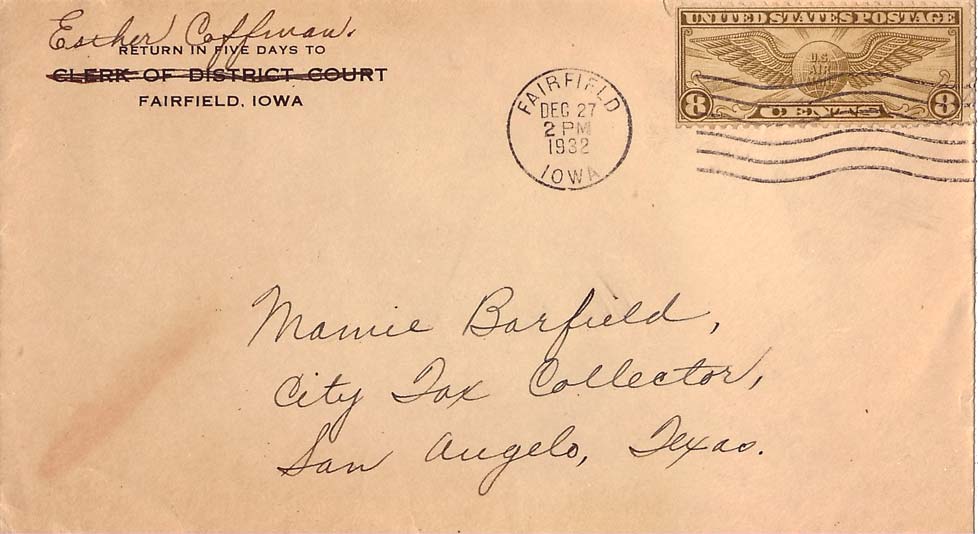 Esther Coffman.
RETURN IN FIVE DAYS TO
CLERK OF DISTRICT COURT
FAIRFIELD, IOWA
FAIRFIELD
DEC 27
2 PM
1932
IOWA
UNITED STATES POSTAGE
U.S.
AIR
8 CENTS 8
Mamie Barfield,
City Tax Collector,
San Angelo, Texas.